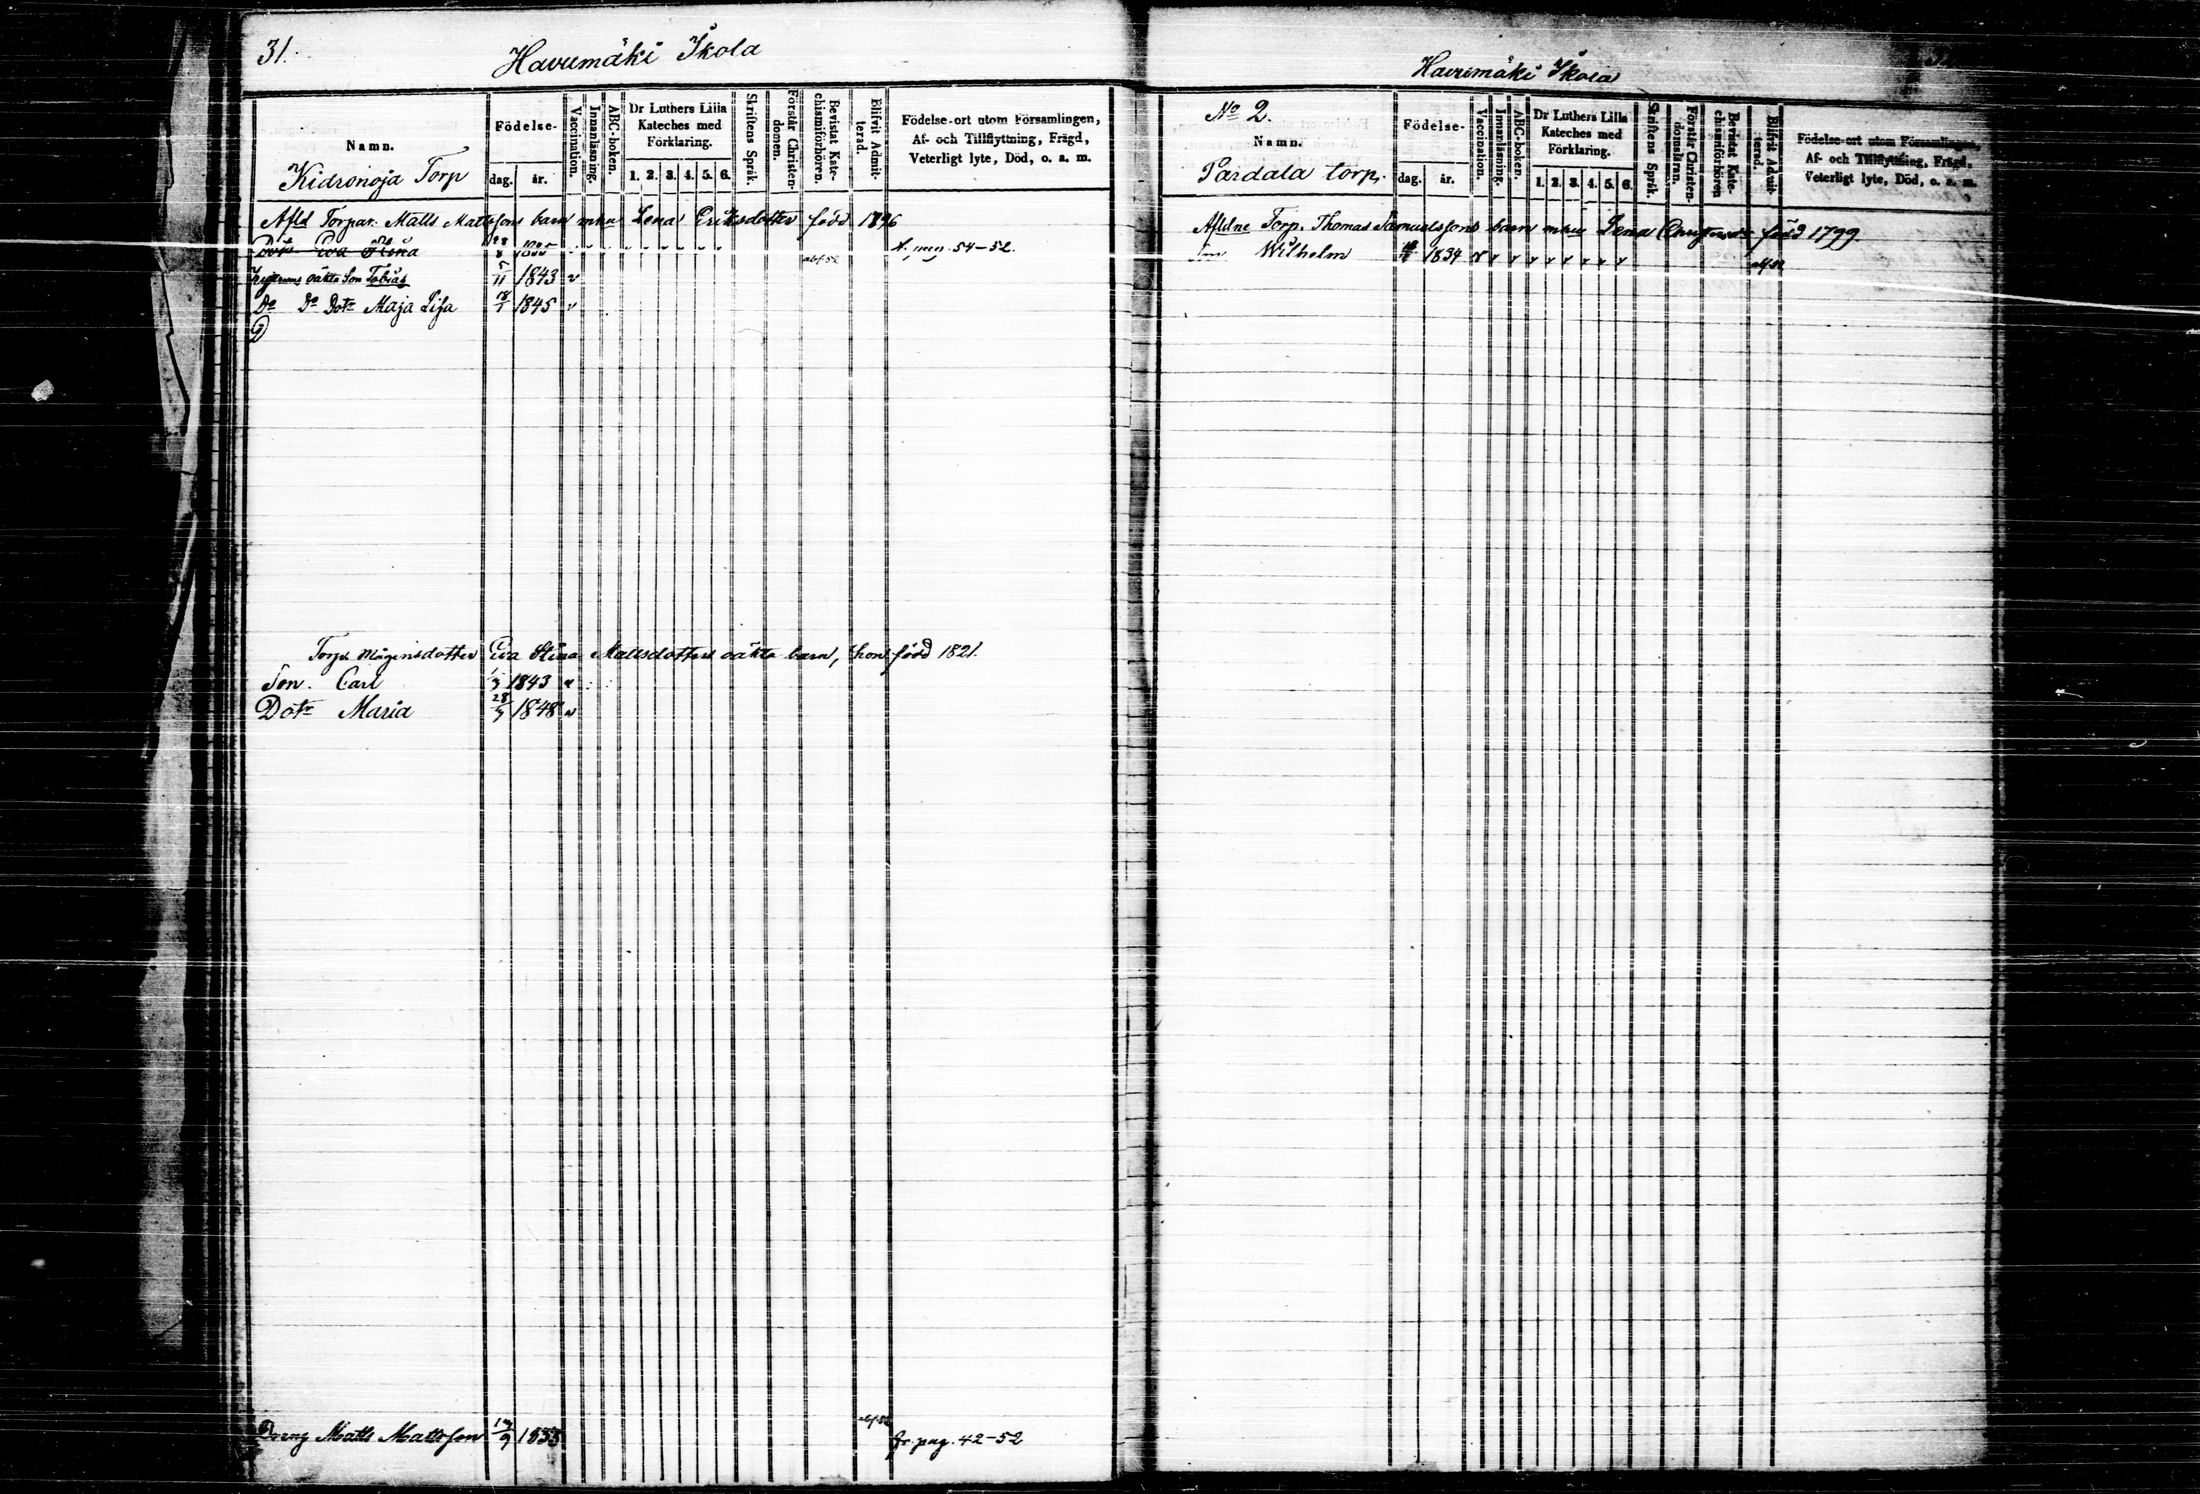 31.
Havumäki Skola
Namn.
Födelse-
dag.
år.
Vaccination.
Innanläsning.
ABC-boken.
Dr Luthers Lilla
Kateches med
Förklaring.
1. 2. 3. 4. 5. 6.
Skriftens Språk.
Förstår Christen-
domen.
Bevistat Kate-
chismiförhören.
Blifvit Admit-
terad.
Födelse-ort utom Församlingen,
Af- och Tillflyttning, Frägd,
Veterligt lyte, Död, o. a. m.
Kidronoja Torp
Afld Torpar. Matts Mattssons barn mhu Lena Eriksdotter född 1796
Dotr Eva Stina 1835 f. pag. 54-52.
oäkta Son Tobias 5/11 1843
Do Do Dotr Maja Lisa 18/7 1845
Torp. Måginsdotter Eva Stina Mattsdotters oäkta barn, hon född 1821.
Son. Carl 1/3 1843
Dotr Maria 28/3 1848
Dreng Matts Mattsson 17/9 1833 fr. pag. 42-52
Havumäki Skola
No 2.
Namn.
Födelse-
dag.
år.
Vaccination.
Innanläsning.
ABC-boken.
Dr Luthers Lilla
Kateches med
Förklaring.
1. 2. 3. 4. 5. 6.
Skriftens Språk.
Förstår Christen-
domsläran.
Bevistat Kate-
chismiförhören
Blifvit Admit-
terad.
Födelse-ort utom Församlingen,
Af- och Tillflyttning, Frägd,
Veterligt lyte, Död, o. a. m.
Pärdala torp.
Afldne Torp. Thomas Samuelssons barn mhu Lena född 1799.
Son Wilhelm 1834